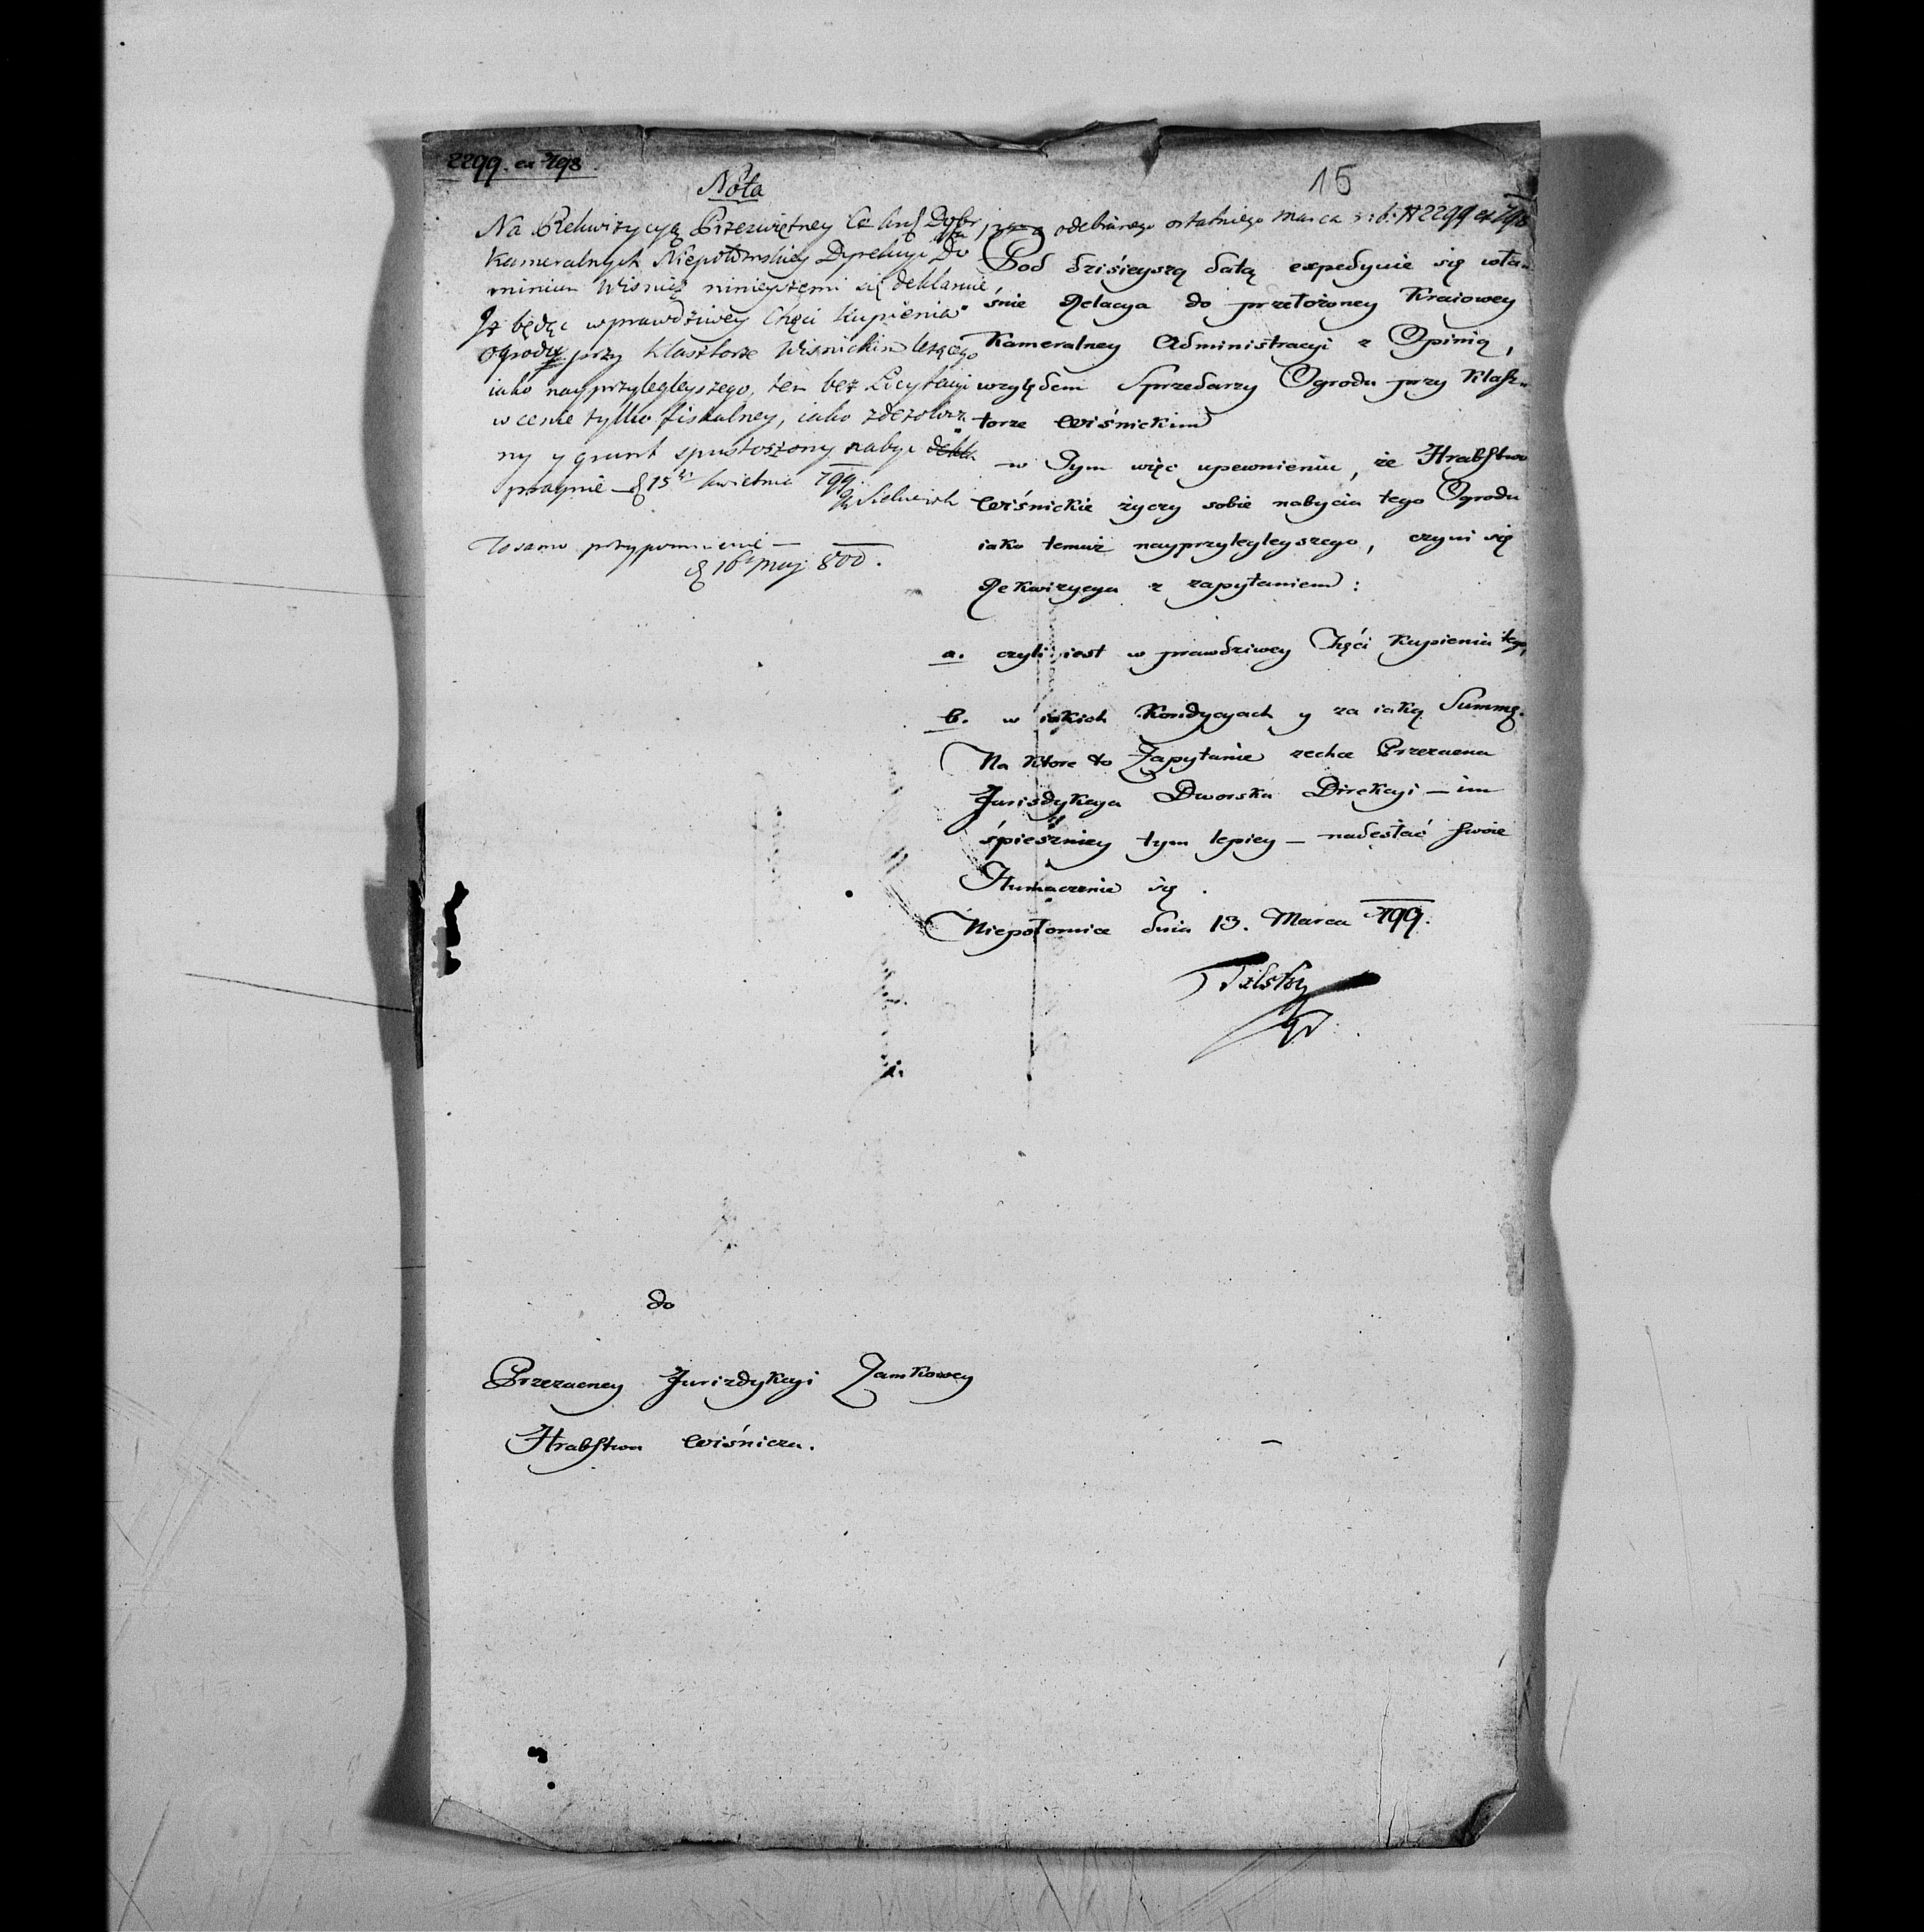 2299. ex 798.
15
Nota
Na Rekwizycyą Przeświętney Ces: Król Dóbr
Kameralnych Niepołomskiey Dyrekcyi Do
minium Wisnicz ninieyszem się deklaruie,
Iż będąc w prawdziwey Chęci kupienia
Ogrodu przy Klasztorze Wisnickim leżącego
iako nayprzyległeyszego, ten bez Licytacyi
w cenie tylko fiskalney, iako zdezolwa
ny y grunt spustoszony nabyć dekla
pragnie d 15 kwietnia 799.
To samo przypomnienie —
d 16 maj 800.
odebranego ostatniego marca r: b: N 2299 ex 798
Pod dzisieyszą datą expedyuie się wła-
śnie Relacya do przełożoney Kraiowey
Kameralney Administracyi z Opinią,
względem Sprzedarzy Ogrodu przy Klasz-
torze Wiśnickim
w Tym więc upewnieniu, że Hrabstwo
Wiśnickie życzy sobie nabycia tego Ogrodu
iako temuż nayprzyległeyszego, czyni się
Rekwizycya z zapytaniem:
a. czyli iest w prawdziwey Chęci Kupienia tego,
b. w iakich Kondycyach y za iaką Summę.
Na ktore to Zapytanie zechce Przezacna
Jurisdykcya Dworska Direkcyi — im
śpieszniey tym lepiey — nadesłać swoie
Tłumaczenie się.
Niepołomice dnia 13. Marca 799.
do
Przezacney Jurizdykcyi Zamkowey
Hrabstwa Wiśnicza.